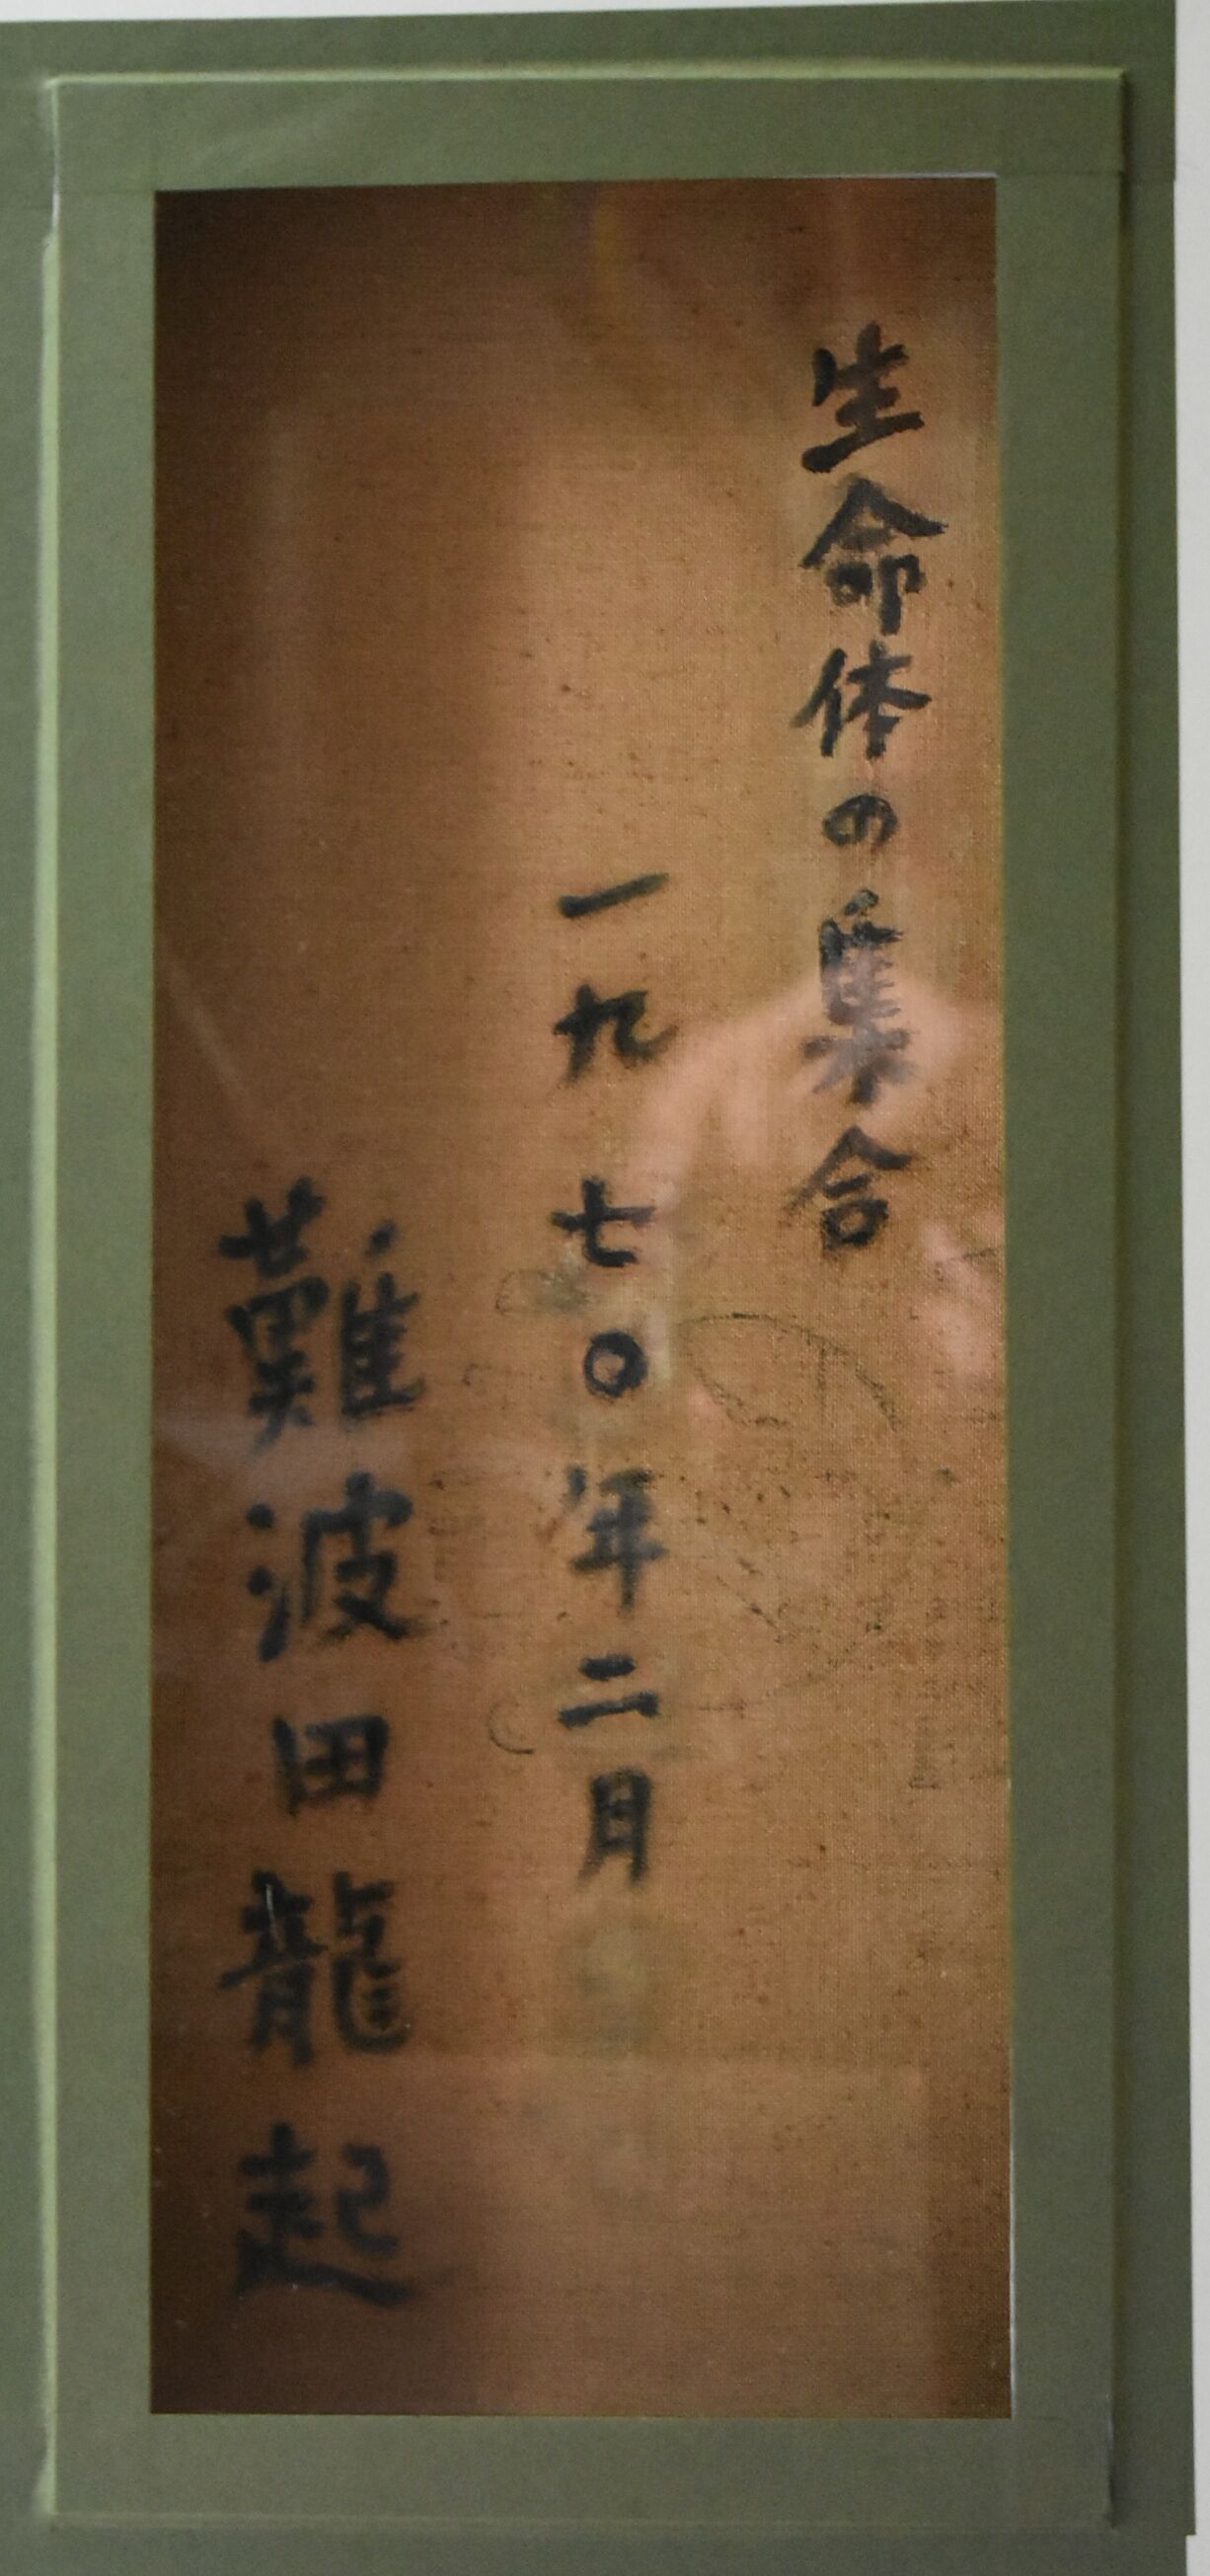 生命体の集合
一九七〇年二月
難波田龍起